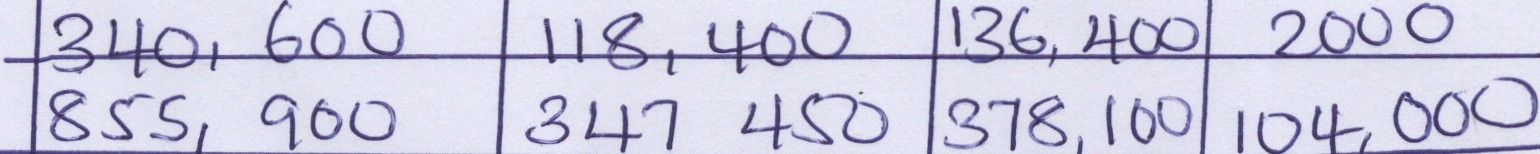 340, 600 118, 400 136, 400 2000
855, 900 347 450 378, 100 104, 000